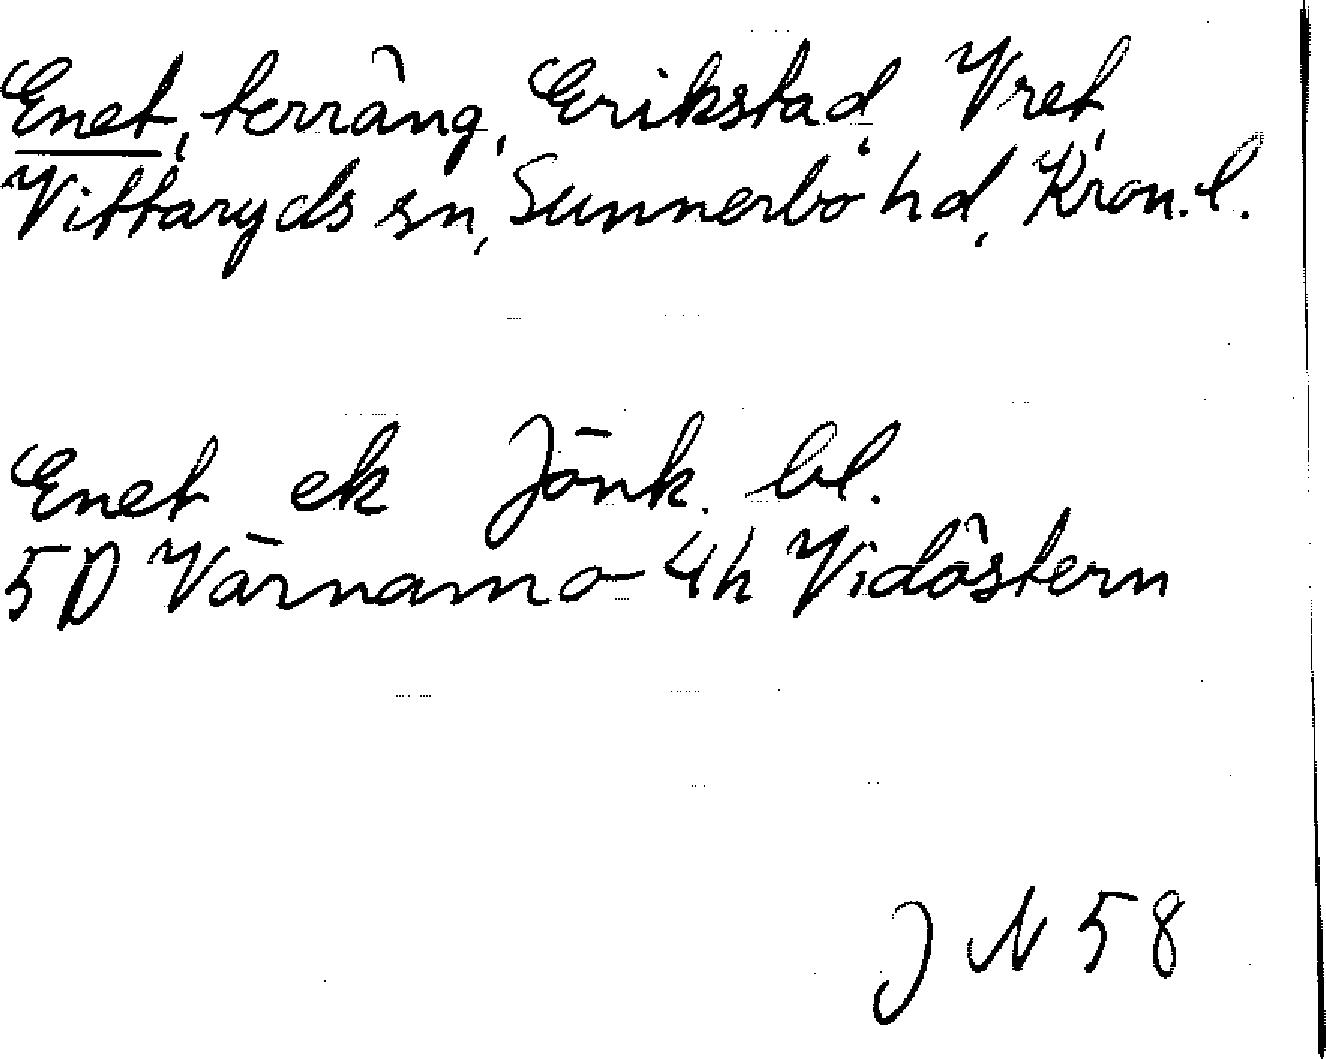 Enet, terräng, Erikstad, Vret,
Vittaryds sn, Sunnerbo hd, Kron.l.
Enet ek Jönk. bl.
5D Värnamo 4h Vidöstern
J N 58